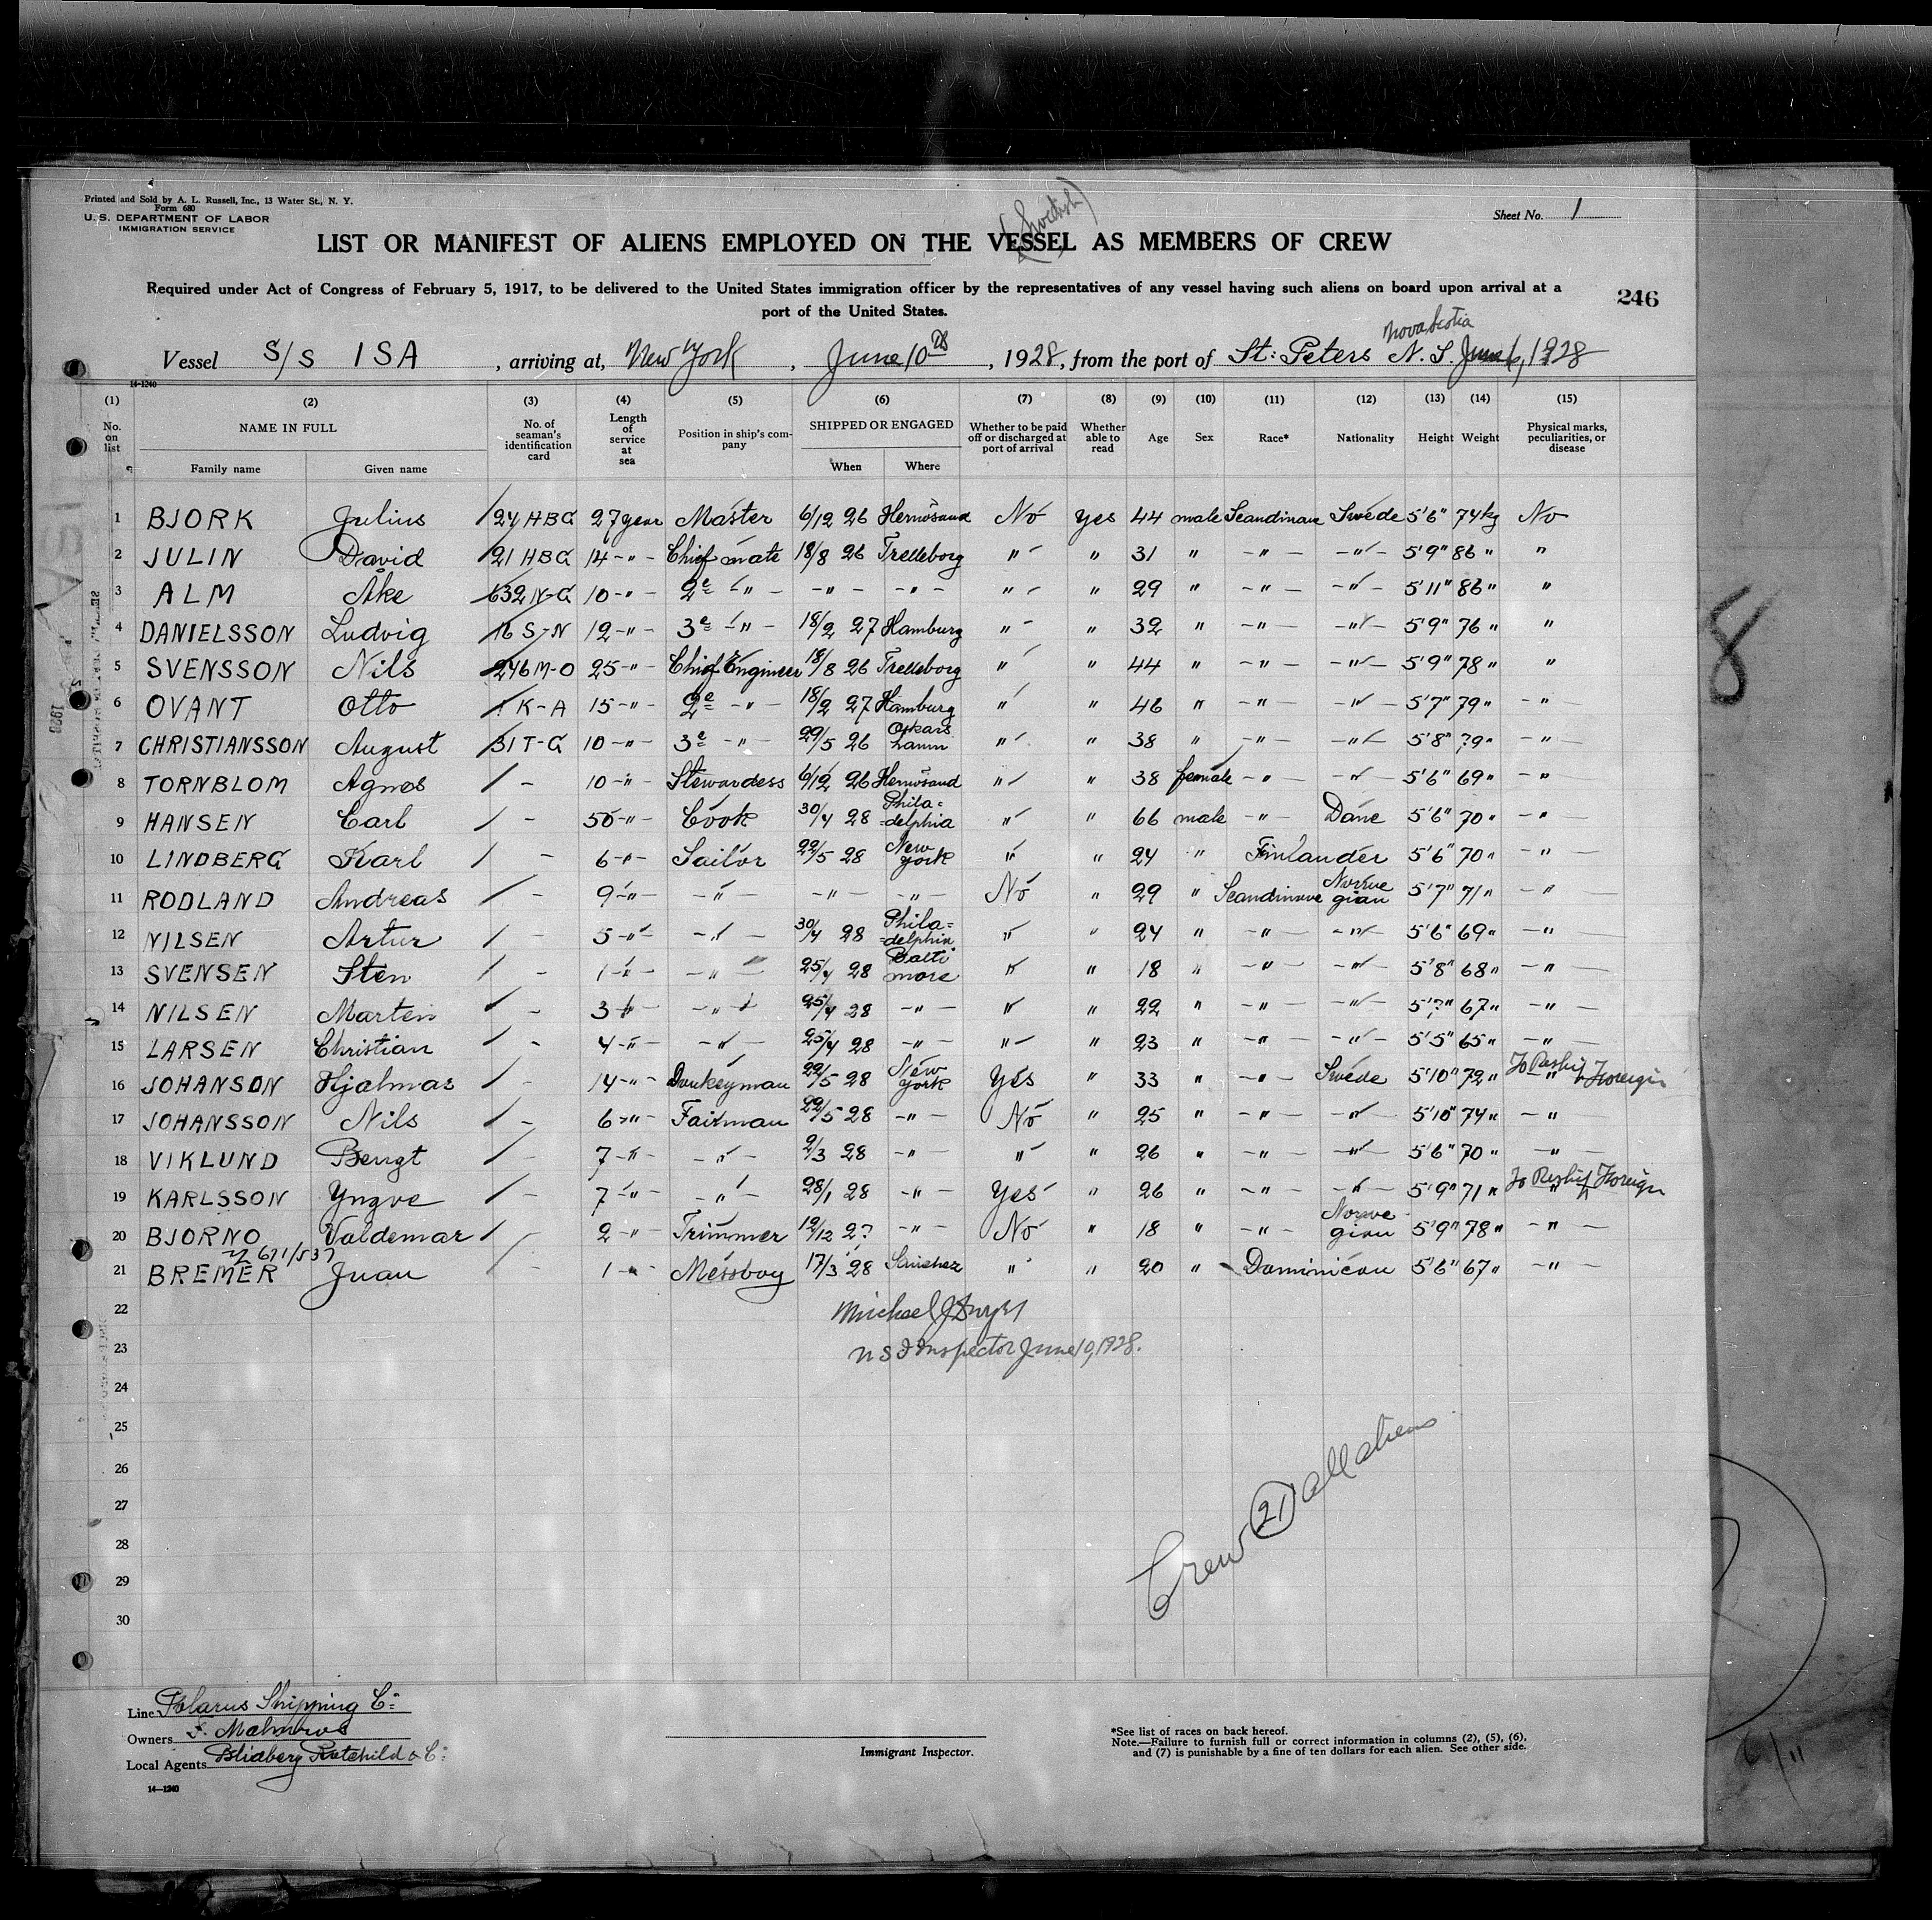 Printed and Sold by A. L. Russell, Inc., 13 Water St., N. Y.
Form 680
U. S. DEPARTMENT OF LABOR
IMMIGRATION SERVICE
(Swedish)
Sheet No. 1
LIST OR MANIFEST OF ALIENS EMPLOYED ON THE VESSEL AS MEMBERS OF CREW
Required under Act of Congress of February 5, 1917, to be delivered to the United States immigration officer by the representatives of any vessel having such aliens on board upon arrival at a
port of the United States.
246
Nova Scotia
Vessel S/S ISA, arriving at, New York, June 10 28, 1928, from the port of St: Peters N. S. June 6, 1928
14-1240
(1) (2) (3) (4) (5) (6) (7) (8) (9) (10) (11) (12) (13) (14) (15)
No. on list NAME IN FULL No. of seaman's identification card Length of service at sea Position in ship's company SHIPPED OR ENGAGED Whether to be paid off or discharged at port of arrival Whether able to read Age Sex Race* Nationality Height Weight Physical marks, peculiarities, or disease
Family name Given name When Where
1 BJORK Julius 24 HBG 27 year Master 6/12 26 Hernösand No Yes 44 male Scandinave Swede 5'6" 74 kg No
2 JULIN David 21 HBG 14 -"- Chief mate 18/8 26 Trelleborg " " 31 " -"- -"- 5'9" 86 " "
3 ALM Åke 632 N-G 10 -"- 2e -"- -"- -"- " " 29 " -"- -"- 5'11" 86 " "
4 DANIELSSON Ludvig 16 S-N 12 -"- 3e -"- 18/2 27 Hamburg " " 32 " -"- -"- 5'9" 76 " "
5 SVENSSON Nils 246 M-O 25 -"- Chief Engineer 18/8 26 Trelleborg " " 44 " -"- -"- 5'9" 78 " "
6 OVANT Otto 1 K-A 15 -"- 2e -"- 18/2 27 Hamburg " " 46 " -"- -"- 5'7" 79 " -"-
7 CHRISTIANSSON August 31 T-G 10 -"- 3e -"- 29/5 26 Oskarshamn " " 38 " -"- -"- 5'8" 79 " -"-
8 TORNBLOM Agnes - 10 -"- Stewardess 6/12 26 Hernösand " " 38 female -"- -"- 5'6" 69 " -"-
9 HANSEN Carl - 50 -"- Cook 30/4 28 Phila=delphia " " 66 male -"- Dane 5'6" 70 " -"-
10 LINDBERG Karl - 6 -"- Sailor 22/5 28 New York " " 24 " Finlander 5'6" 70 " -"-
11 RODLAND Andreas - 9 -"- -"- -"- -"- No " 29 " Scandinave Norwegian 5'7" 71 " -"-
12 NILSEN Artur - 5 -"- -"- 30/4 28 Phila=delphia " " 24 " -"- -"- 5'6" 69 " -"
13 SVENSEN Sten - 1 -"- -"- 25/4 28 Baltimore " " 18 " -"- -"- 5'8" 68 " -"-
14 NILSEN Marten - 3 -"- -"- 25/4 28 -"- " " 22 " -"- -"- 5'7" 67 " -"-
15 LARSEN Christian - 4 -"- -"- 25/4 28 -"- " " 23 " -"- -"- 5'5" 65 " -"-
16 JOHANSON Hjalmar - 14 -"- Donkeyman 22/5 28 New York Yes " 33 " -"- Swede 5'10" 72 " -"- To Reship Foreign
17 JOHANSSON Nils - 6 -"- Fairman 22/5 28 -"- No " 25 " -"- -"- 5'10" 74 " -"
18 VIKLUND Bengt - 7 -"- -"- 2/3 28 -"- " " 26 " -"- -"- 5'6" 70 " -"-
19 KARLSSON Yngve - 7 -"- -"- 28/1 28 -"- Yes " 26 " -"- -"- 5'9" 71 " " To Reship Foreign
20 BJORNO Valdemar - 2 -"- Trimmer 12/12 27 -"- No " 18 " -"- Norwegian 5'9" 78 " -"-
671/537
21 BREMER Juan - 1 -"- Messboy 17/3 28 Sanchez " " 20 " Dominican 5'6" 67 " -"-
22
Michael J Dwyer
23
U S I Inspector June 10, 1928.
24
25
26
27
28
29
30
Crew (21) all aliens
8
Line Polarus Shipping Co:
Owners F. Malmros
Local Agents Blidberg Rotchild & Co:
14-1240
Immigrant Inspector.
*See list of races on back hereof.
Note.—Failure to furnish full or correct information in columns (2), (5), (6),
and (7) is punishable by a fine of ten dollars for each alien. See other side.
6/11